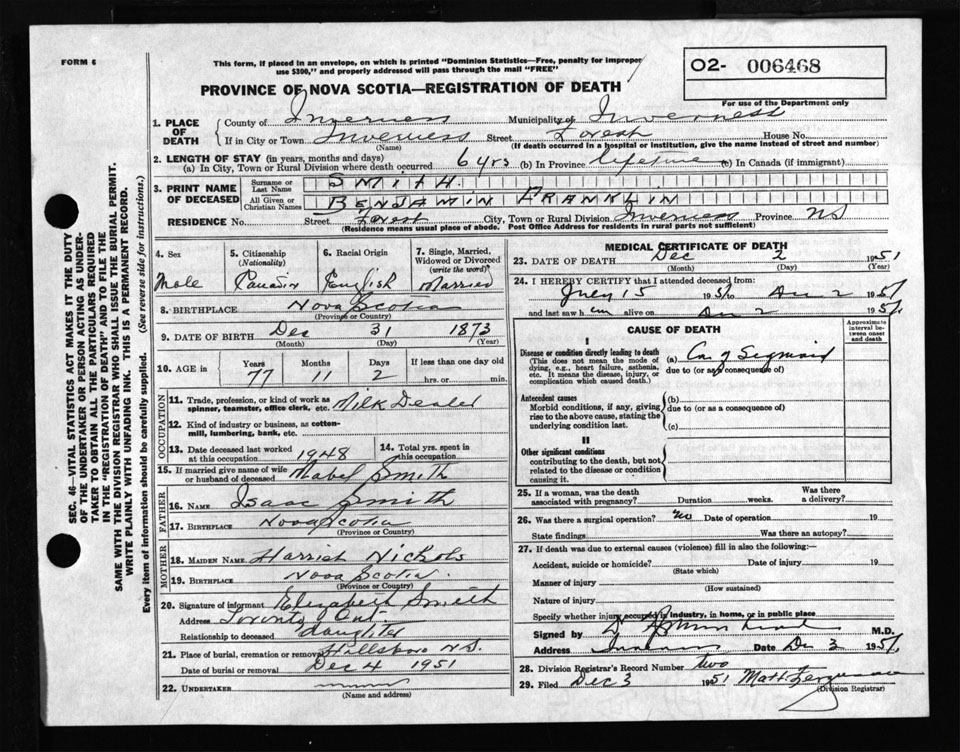 FORM 6
This form, if placed in an envelope, on which is printed "Dominion Statistics—Free, penalty for improper
use $300," and properly addressed will pass through the mail "FREE"
O2- 006468
For use of the Department only
PROVINCE OF NOVA SCOTIA—REGISTRATION OF DEATH
1. PLACE OF DEATH
County of Inverness Municipality of Inverness
If in City or Town Inverness Street Forest House No.
(Name) (If death occurred in a hospital or institution, give the name instead of street and number)
2. LENGTH OF STAY (in years, months and days)
(a) In City, Town or Rural Division where death occurred 6 yrs (b) In Province lifetime (c) In Canada (if immigrant)
3. PRINT NAME OF DECEASED
Surname or Last Name SMITH.
All Given or Christian Names BENJAMIN FRANKLIN
RESIDENCE No. Street Forest City, Town or Rural Division Inverness Province NS
(Residence means usual place of abode. Post Office Address for residents in rural parts not sufficient)
4. Sex
Male
5. Citizenship
(Nationality)
6. Racial Origin
English
7. Single, Married,
Widowed or Divorced
(write the word)
Married
8. BIRTHPLACE Nova Scotia
(Province or Country)
9. DATE OF BIRTH Dec 31 1873
(Month) (Day) (Year)
10. AGE in
Years Months Days If less than one day old
77 11 2 hrs. or min.
OCCUPATION
11. Trade, profession, or kind of work as
spinner, teamster, office clerk, etc. Milk Dealer
12. Kind of industry or business, as cotton-
mill, lumbering, bank, etc.
13. Date deceased last worked
at this occupation 1948
14. Total yrs. spent in
this occupation
15. If married give name of wife
or husband of deceased Mabel Smith
FATHER
16. NAME Isaac Smith
17. BIRTHPLACE Nova Scotia
(Province or Country)
MOTHER
18. MAIDEN NAME Harriet Nichols
19. BIRTHPLACE Nova Scotia.
(Province or Country)
20. Signature of informant Elizabeth Smith
Address Toronto Ont.
Relationship to deceased daughter
21. Place of burial, cremation or removal Hillsboro N.S.
Date of burial or removal Dec 4 1951
22. UNDERTAKER
(Name and address)
MEDICAL CERTIFICATE OF DEATH
23. DATE OF DEATH Dec 2 1951
(Month) (Day) (Year)
24. I HEREBY CERTIFY that I attended deceased from:
July 15 1951 to 2 1951
and last saw h im alive on 2 1951
CAUSE OF DEATH
Approximate
interval be-
tween onset
and death
I
Disease or condition directly leading to death
(This does not mean the mode of
dying, e.g., heart failure, asthenia,
etc. It means the disease, injury, or
complication which caused death.)
(a) Ca of Sigmoid
due to (or as consequence of)
Antecedent causes
Morbid conditions, if any, giving
rise to the above cause, stating the
underlying condition last.
(b)
due to (or as a consequence of)
(c)
II
Other significant conditions
contributing to the death, but not
related to the disease or condition
causing it.
25. If a woman, was the death
associated with pregnancy? Duration weeks. Was there
a delivery?
26. Was there a surgical operation? no Date of operation 19
State findings Was there an autopsy?
27. If death was due to external causes (violence) fill in also the following:—
Accident, suicide or homicide? Date of injury 19
(State which)
Manner of injury
(How sustained)
Nature of injury
Specify whether injury occurred in industry, in home, or in public place
Signed by M.D.
Address Date Dec 3 1951
28. Division Registrar's Record Number two
29. Filed Dec 3 1951 Matt. Ferguson
(Division Registrar)
SEC. 46—VITAL STATISTICS ACT MAKES IT THE DUTY
OF THE UNDERTAKER OR PERSON ACTING AS UNDER-
TAKER TO OBTAIN ALL THE PARTICULARS REQUIRED
IN THE "REGISTRATION OF DEATH" AND TO FILE THE
SAME WITH THE DIVISION REGISTRAR WHO SHALL ISSUE THE BURIAL PERMIT.
WRITE PLAINLY WITH UNFADING INK. THIS IS A PERMANENT RECORD.
Every item of information should be carefully supplied. (See reverse side for instructions.)